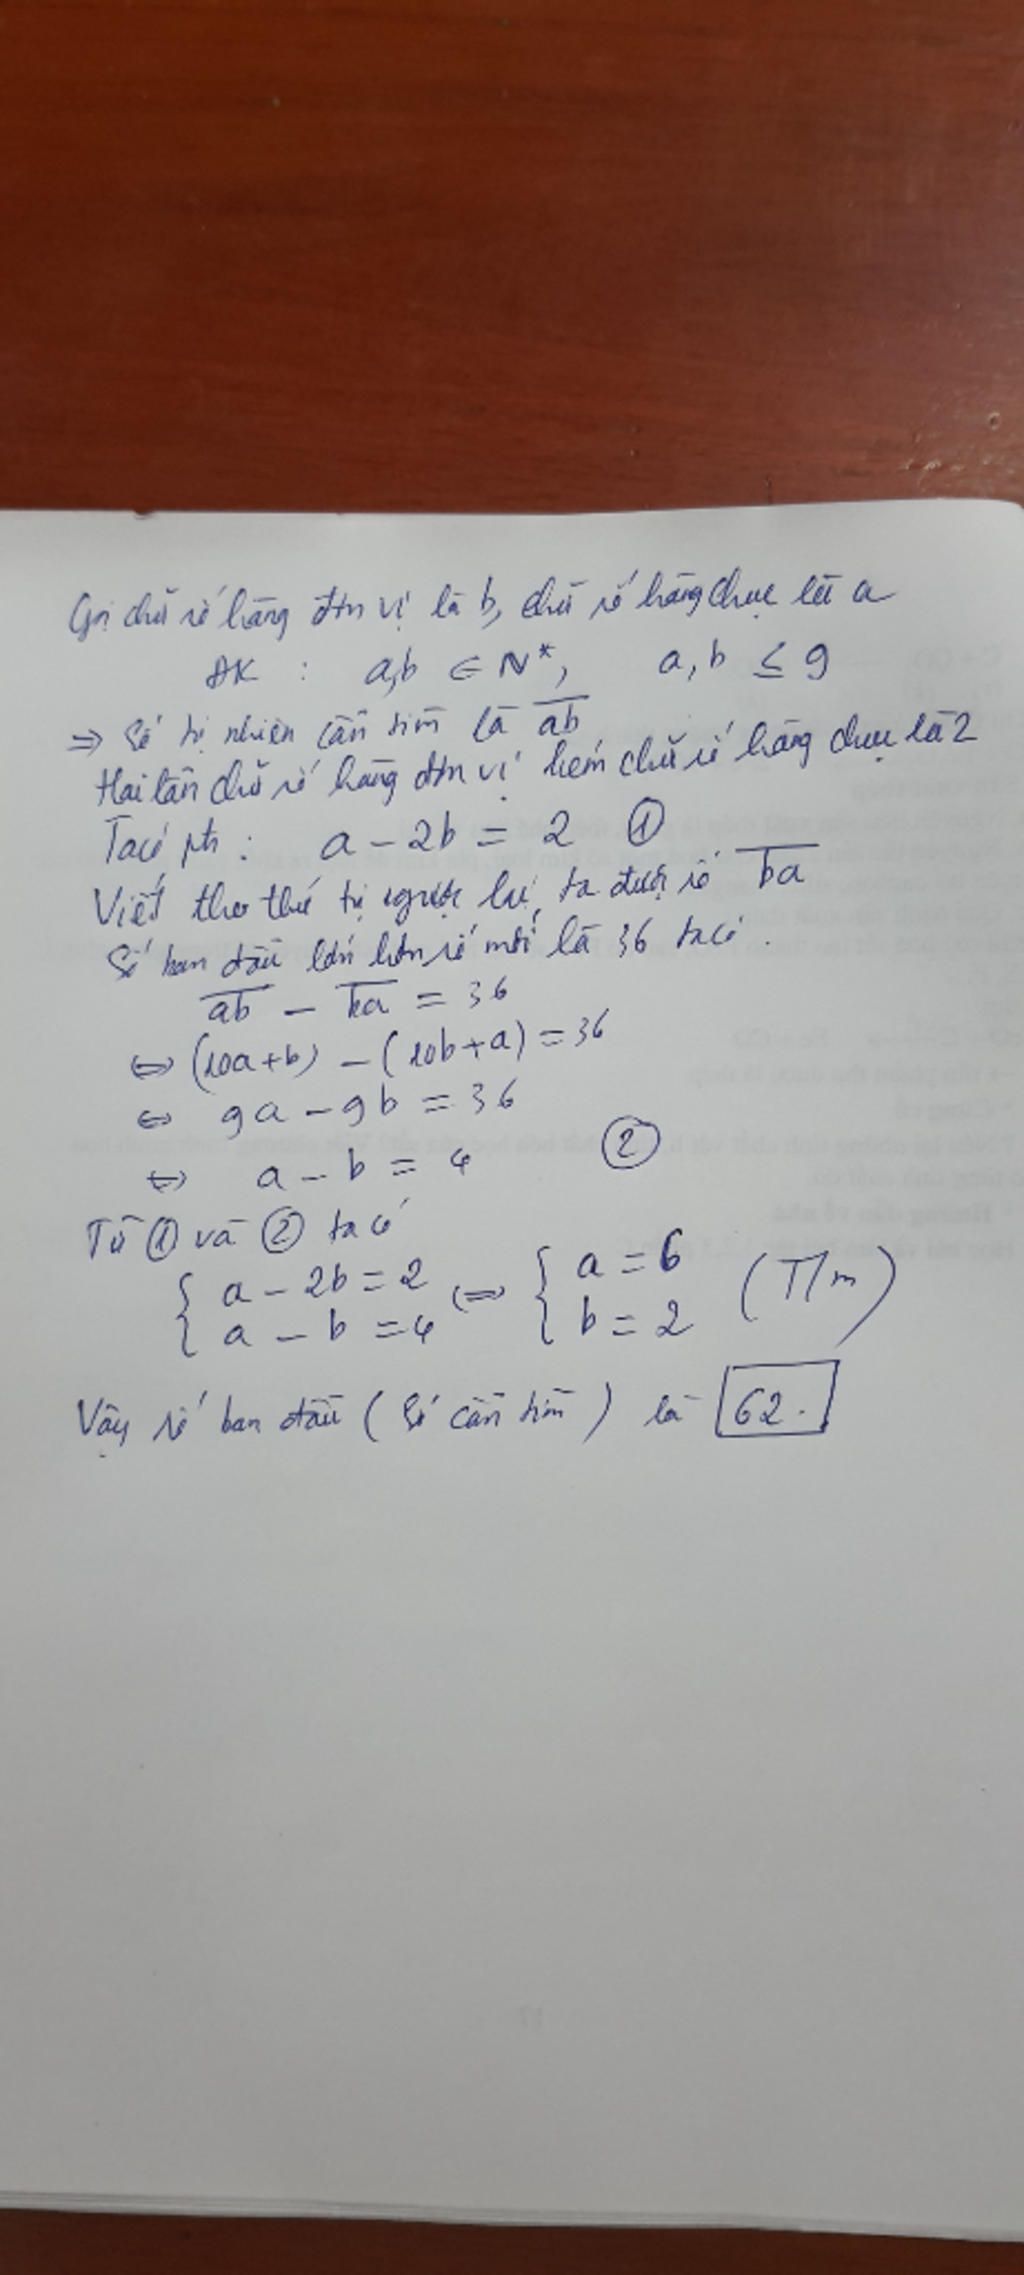 Gọi chữ số hàng đơn vị là b, chữ số hàng chục là a
ĐK : a,b ∈ N*, a, b ≤ 9
⇒ Số tự nhiên cần tìm là \overline{ab}
Hai lần chữ số hàng đơn vị kém chữ số hàng chục là 2
Ta có pt: a - 2b = 2 ①
Viết theo thứ tự ngược lại, ta được số \overline{ba}
Số ban đầu lớn hơn số mới là 36 ta có:
\overline{ab} - \overline{ba} = 36
⇔ (10a+b) - (10b+a) = 36
⇔ 9a - 9b = 36
⇔ a - b = 4 ②
Từ ① và ② ta có
{ a - 2b = 2 ⇔ { a = 6 (T/m)
{ a - b = 4 { b = 2
Vậy số ban đầu (Số cần tìm) là 62.